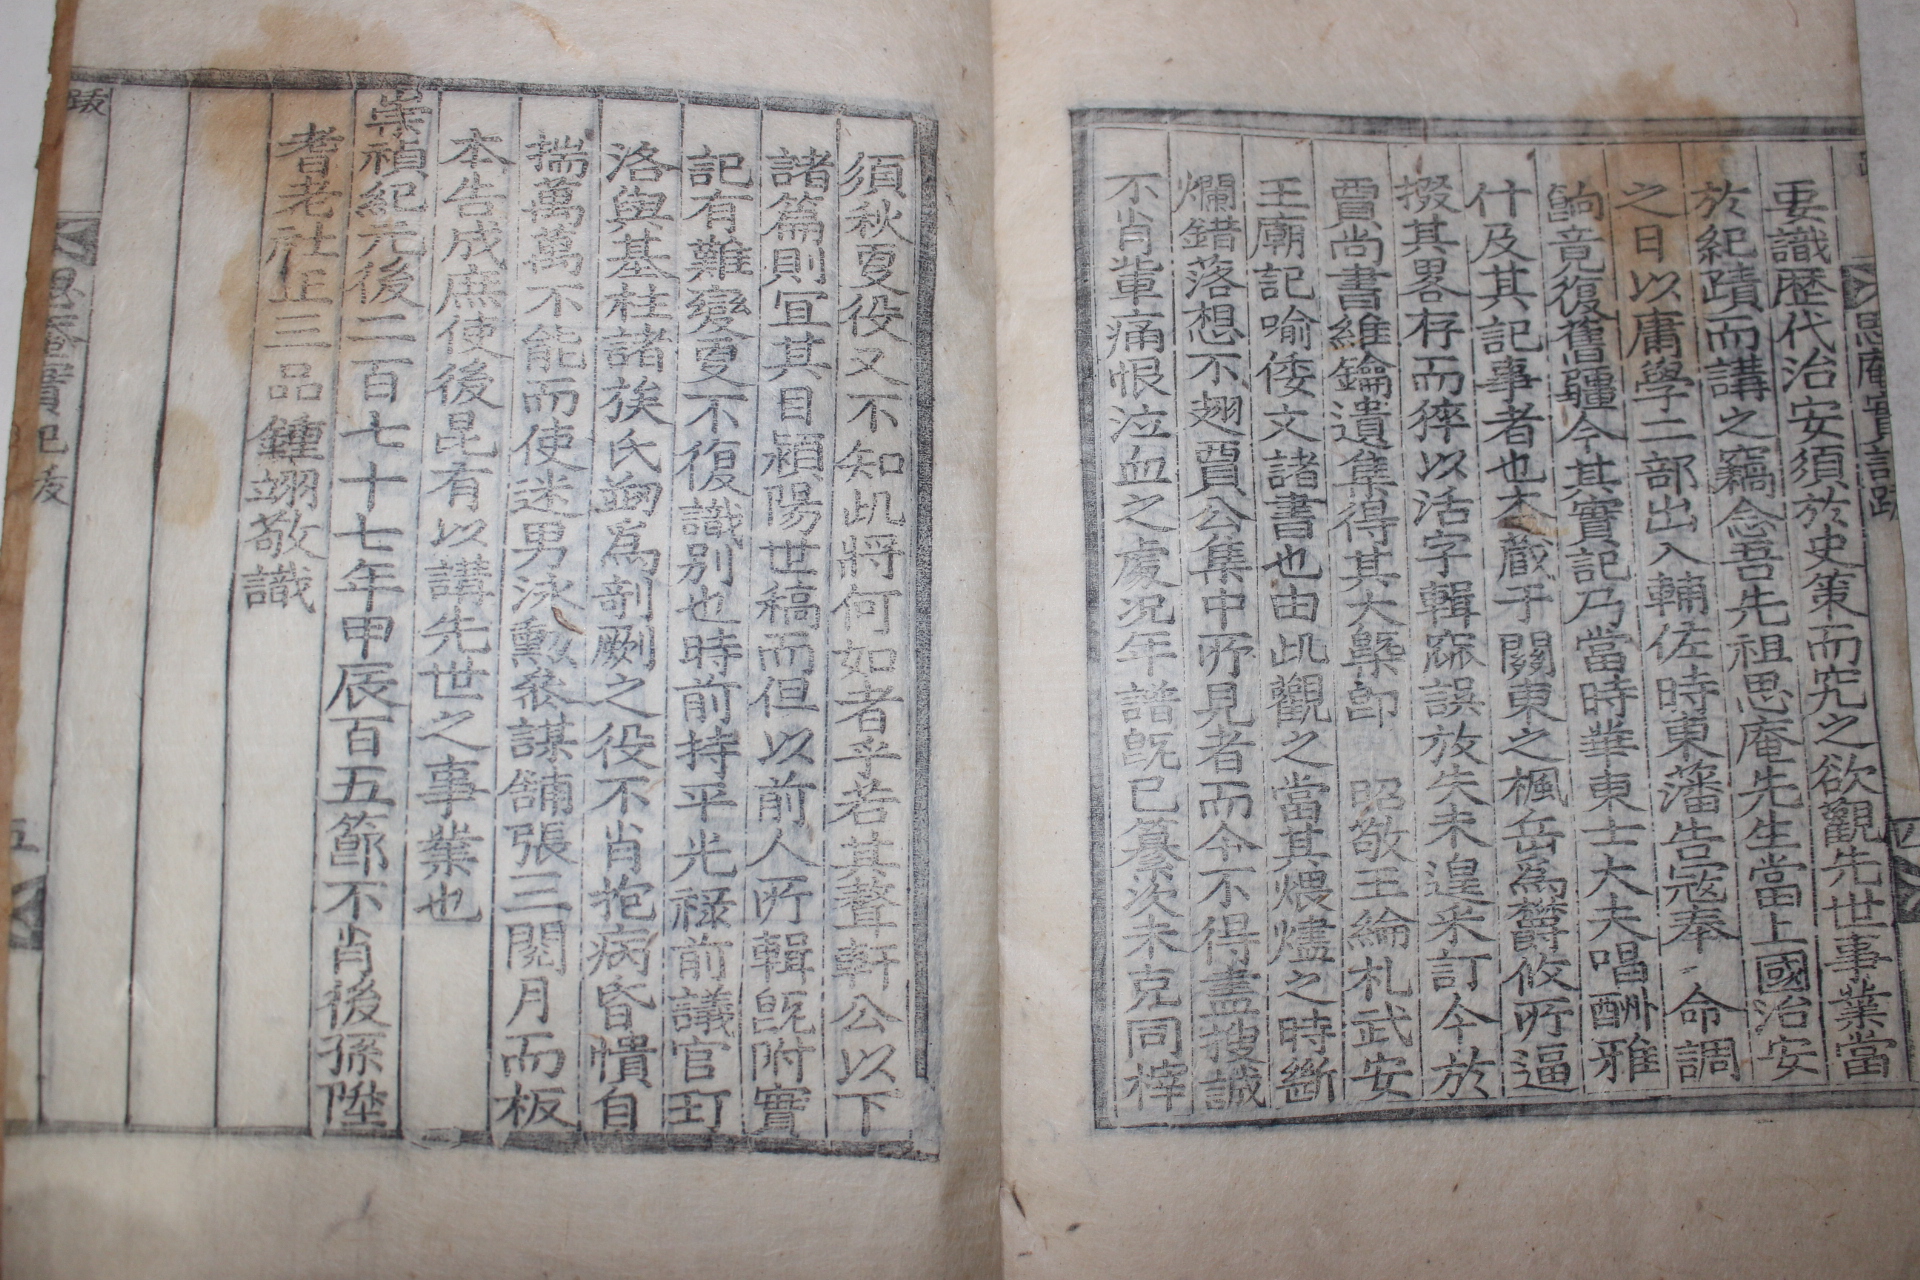 思庵實記跋
要識歷代治安須於史策而究之欲觀先世事業當
於紀蹟而講之竊念吾先祖思庵先生當上國治安
之日以庸學二部出入輔佐時東藩告寇奉 命調
餉竟復舊疆今其實記乃當時華東士大夫唱酬雅
什及其記事者也本藏于關東之楓岳爲欝攸所逼
掇其畧存而猝以活字輯寀誤放失未遑釆訂今於
賈尚書維鑰遺集得其大槩卽 昭敬王綸札武安
王廟記喻倭文諸書也由此觀之當其煨燼之時斷
爛錯落想不翅賈公集中所見者而今不得盡搜誠
不肖輩痛恨泣血之處况年譜旣已纂次未克同梓
須秋夏役又不知此將何如者乎若其聱軒公以下
諸篇則宜其目潁陽世稿而但以前人所輯旣附實
記有難變更不復識別也時前持平光祿前議官玎
洛與基柱諸族氏迿爲剞劂之役不肖抱病昏憒自
揣萬萬不能而使迷男泳勳叅謀舖張三閱月而板
本告成庶使後昆有以講先世之事業也
崇禎紀元後二百七十七年甲辰百五節不肖後孫陞
耆老社正三品鍾翊敬識
跋
思庵實記跋
五